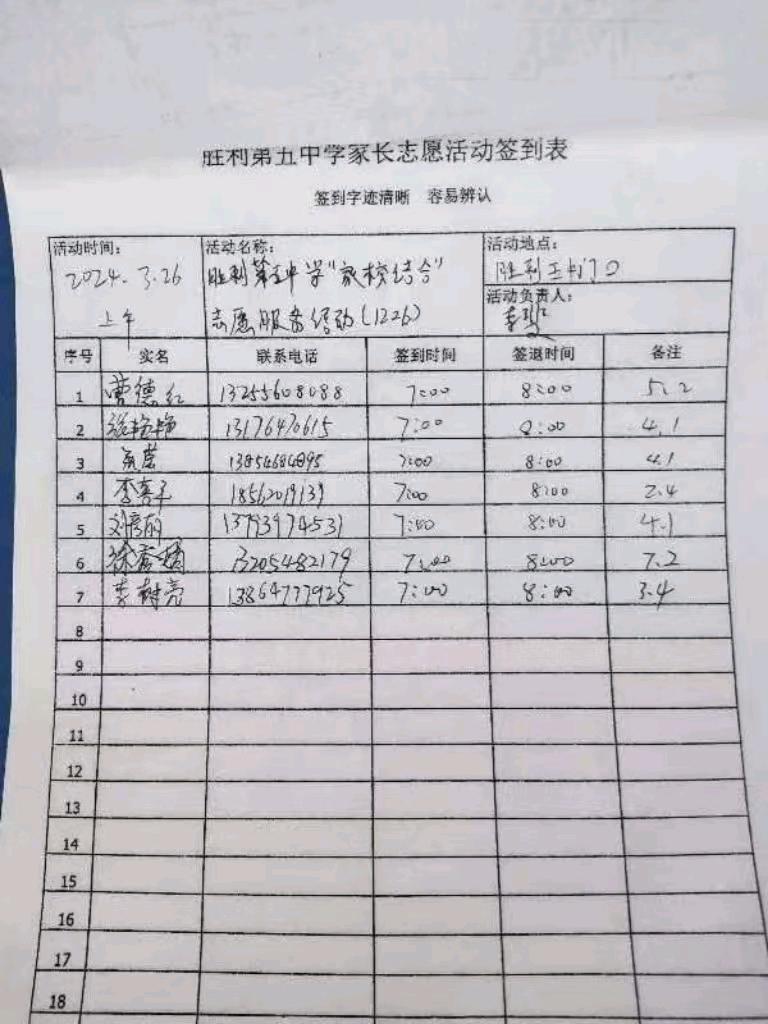 胜利第五中学家长志愿活动签到表
签到字迹清晰 容易辨认
活动时间： 活动名称： 活动地点：
2024.3.26 胜利第五中学"家校结合" 胜利五中门口
上午 志愿服务活动(1226) 活动负责人：
序号 实名 联系电话 签到时间 签退时间 备注
1 曹德红 13255608088 7:00 8:00 5.2
2 13176470615 7:00 8:00 4.1
3 13854684895 7:00 8:00 4.1
4 李喜平 18562019139 7:00 8:00 2.4
5 刘彦丽 13793974531 7:00 8:00 4.1
6 徐秀娟 13205482179 7:00 8:00 7.2
7 李树亮 13864777925 7:00 8:00 3.4
8
9
10
11
12
13
14
15
16
17
18